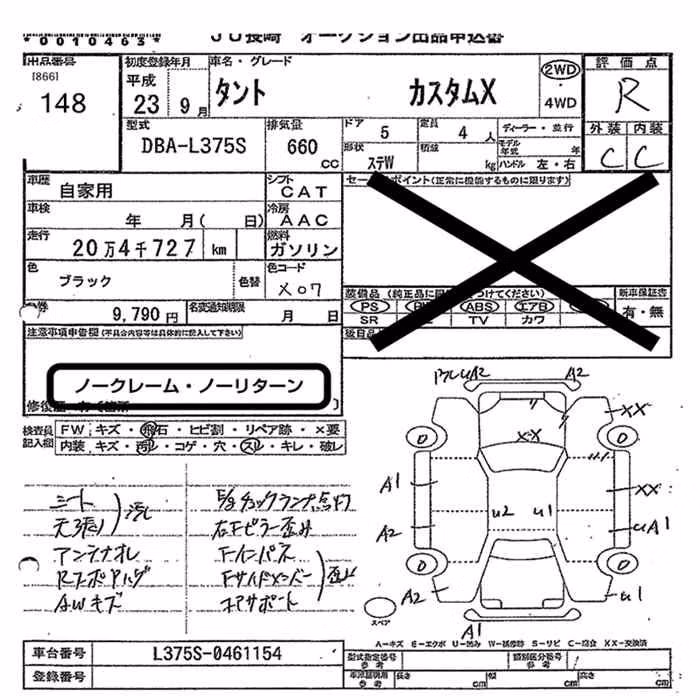 *0010463*
JU長崎 オークション出品申込書
出品番号 [866] 148
初度登録年月 平成 23 9月
車名・グレード タント カスタムX
2WD
4WD
評価点 R
外装 内装
C C
型式 DBA-L375S
排気量 660 cc
ドア 5
定員 4人
ディーラー・並行
形状 ステW
積載 kg
モデル年式 年
ハンドル 左・右
車歴 自家用
シフト CAT
車検 年 月( 日)
冷房 AAC
走行 20万4千727 km
燃料 ガソリン
色 ブラック 色替
色コード X07
券 9,790円
名変通知期限 月 日
セールスポイント(正常に機能するものに限ります)
装備品 (純正品に つけてください)
PS ABS エアB
SR TV カワ
新車保証書 有・無
後日品
注意事項申告欄(不具合内容等は具体的に記入して下さい)
ノークレーム・ノーリターン
修復歴
検査員記入欄
FW キズ・飛石・ヒビ割・リペア跡・×要
内装 キズ・汚れ・コゲ・穴・スレ・キレ・破レ
シート
天張り 汚レ
アンテナオレ
AWキズ
E/gチェックランプ点灯
右Fピラー歪み
Fインパネ
Fサイドメンバー 歪み
コアサポート
A2 A2
XX
XX
A1
XX
A2
u2 u1
uA1
A2
u1
A1
スペア
A-キズ E-エクボ U-凹み W-補修跡 S-サビ C-腐食 XX-交換済
車台番号 L375S-0461154
登録番号
型式指定番号 参考
類別区分番号 参考
車庫証明用 参考 長さ cm 幅 cm 高さ cm